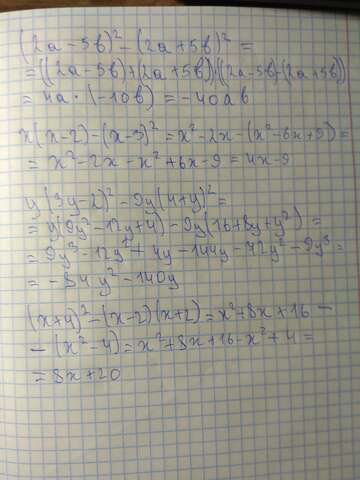 (2a-5b)² - (2a+5b)² =
= ((2a-5b)+(2a+5b))·((2a-5b)-(2a+5b))
= 4a·(-10b) = -40ab
x(x-2)-(x-3)² = x²-2x-(x²-6x+9) =
= x²-2x-x²+6x-9 = 4x-9
y(3y-2)²-9y(4+y)² =
= y(9y²-12y+4)-9y(16+8y+y²) =
= 9y³-12y²+4y-144y-72y²-9y³ =
= -84y²-140y
(x+4)²-(x-2)(x+2) = x²+8x+16 -
- (x²-4) = x²+8x+16-x²+4 =
= 8x+20